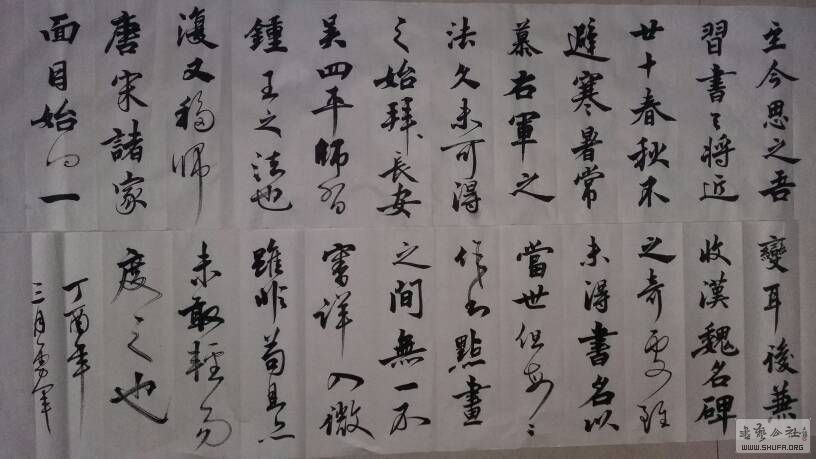 至今思之吾
習書〻將近
廿十春秋不
避寒暑常
慕右軍之
法久未可得
之始拜長安
吴四平師習
鍾王之法也
復又師
唐宋諸家
面目始一
變耳後兼
收漢魏名碑
之奇處雖
未得書名以
當世但每〻
作書點畫
之間無一不
審詳入微
雖苟且
未敢輕易
度之也
丁酉年
三月軍
書藝公社
WWW.SHUFA.ORG